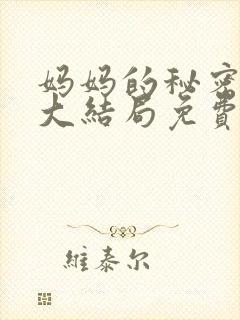 妈妈的秘密
大结局免費
維泰尔